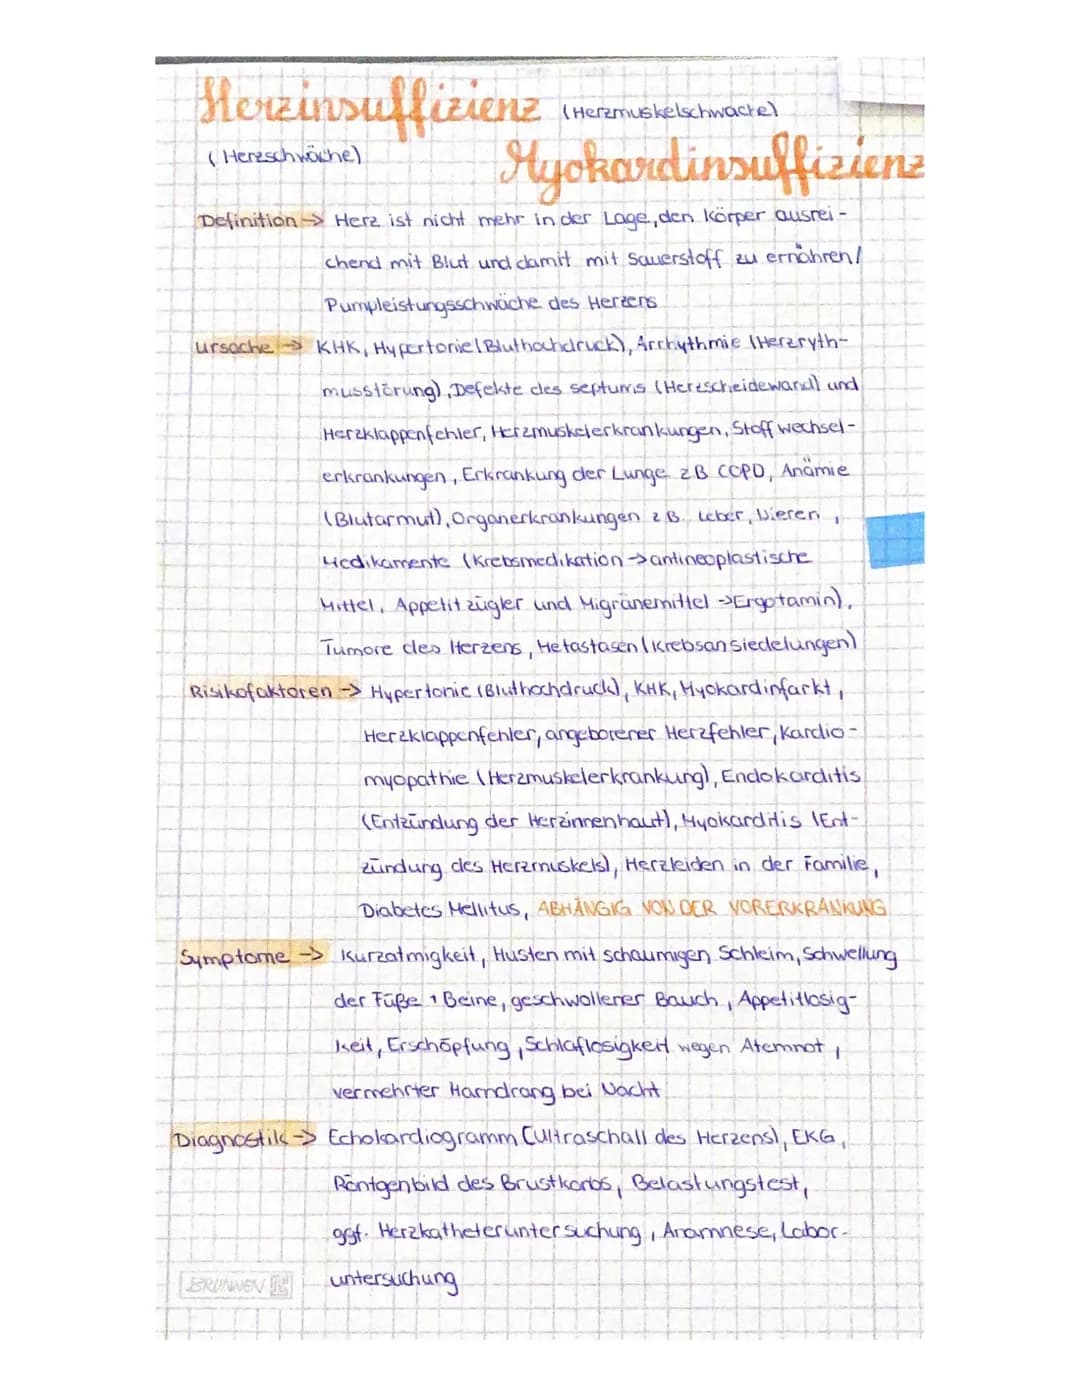 Herzinsuffizienz (Herzmuskelschwäche)
(Herzschwäche)
Myokardinsuffizienz
Definition → Herz ist nicht mehr in der Lage, den Körper ausrei-
chend mit Blut und damit mit Sauerstoff zu ernähren/
Pumpleistungsschwäche des Herzens
Ursache → KHK, Hypertonie (Bluthochdruck), Arrhythmie (Herzryth-
musstörung), Defekte des Septums (Herzscheidewand) und
Herzklappenfehler, Herzmuskelerkrankungen, Stoffwechsel-
erkrankungen, Erkrankung der Lunge z.B COPD, Anämie
(Blutarmut), Organerkrankungen z.B. Leber, Nieren,
Medikamente (Krebsmedikation → antineoplastische
Mittel, Appetitzügler und Migränemittel → Ergotamin),
Tumore des Herzens, Metastasen (Krebsansiedelungen)
Risikofaktoren → Hypertonie (Bluthochdruck), KHK, Myokardinfarkt,
Herzklappenfehler, angeborener Herzfehler, Kardio-
myopathie (Herzmuskelerkrankung), Endokarditis
(Entzündung der Herzinnenhaut), Myokarditis (Ent-
zündung des Herzmuskels), Herzleiden in der Familie,
Diabetes Mellitus, ABHÄNGIG VON DER VORERKRANKUNG
Symptome → Kurzatmigkeit, Husten mit schaumigen Schleim, Schwellung
der Füße + Beine, geschwollener Bauch, Appetitlosig-
keit, Erschöpfung, Schlaflosigkeit wegen Atemnot,
vermehrter Harndrang bei Nacht
Diagnostik → Echokardiogramm (Ultraschall des Herzens), EKG,
Röntgenbild des Brustkorbs, Belastungstest,
ggf. Herzkatheteruntersuchung, Anamnese, Labor-
untersuchung
BRUNNEN